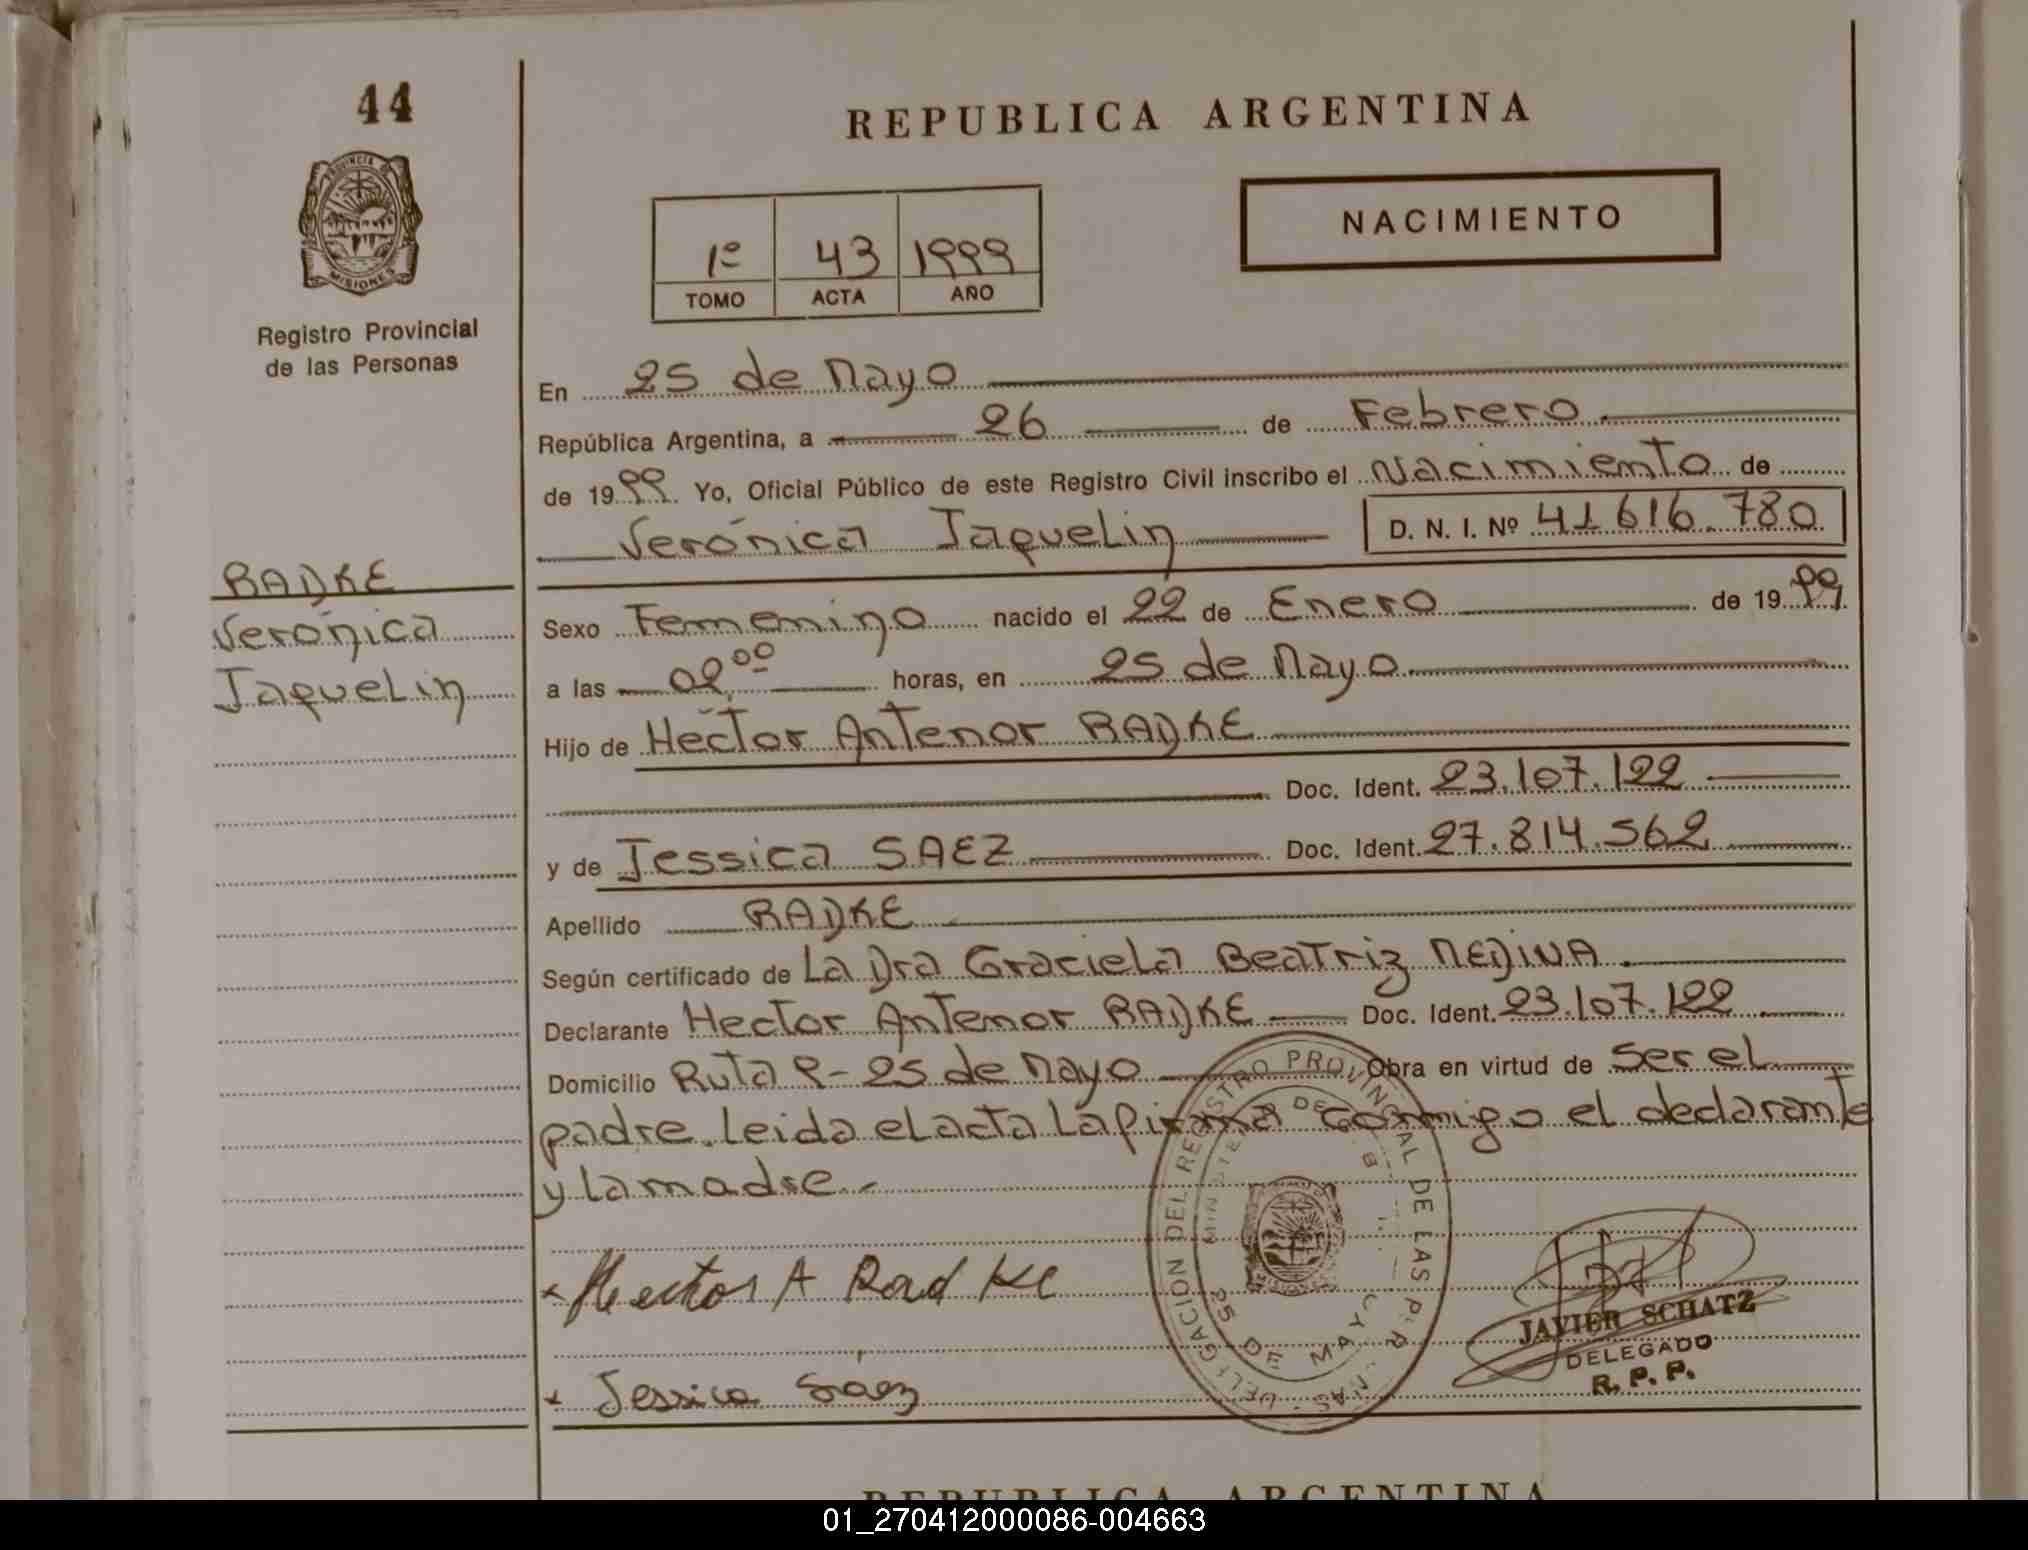 44
REPUBLICA ARGENTINA
PROVINCIA DE
MISIONES
Registro Provincial
de las Personas
1º 43 1999
TOMO ACTA AÑO
NACIMIENTO
En 25 de Mayo
República Argentina, a 26 de Febrero
de 1999 Yo, Oficial Público de este Registro Civil inscribo el Nacimiento de
Verónica Jaquelin D. N. I. Nº 41616.780
RADKE
Verónica
Jaquelin
Sexo Femenino nacido el 22 de Enero de 1999
a las 02,00 horas, en 25 de Mayo
Hijo de Hector Antenor RADKE
Doc. Ident. 23.107.122
y de Jessica SAEZ Doc. Ident. 27.814.562
Apellido RADKE
Según certificado de La Dra Graciela Beatriz MEDINA.
Declarante Hector Antenor RADKE Doc. Ident. 23.107.122
Domicilio Ruta 8 - 25 de Mayo Obra en virtud de ser el
padre. leida el acta La firma conmigo el declarante
y la madre.-
DELEGACION DEL REGISTRO PROVINCIAL DE LAS
25 DE MAYO
MISIONES
Hector A Radke
Jessica Sáez
JAVIER SCHATZ
DELEGADO
R. P. P.
REPUBLICA ARGENTINA
01_270412000086-004663